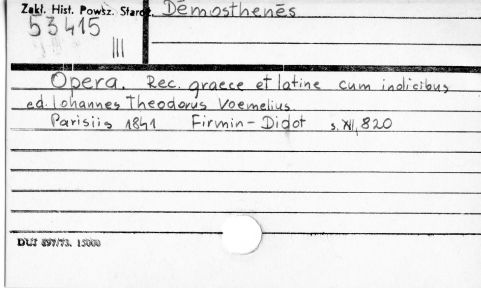 Zakł. Hist. Powsz. Staroż. Dēmosthenēs
53415
III
Opera. Rec. graece et latine cum indicibus
ed. Iohannes Theodorus Voemelius.
Parisiis 1841 Firmin-Didot s. XII, 820
DUJ 897/73. 15000